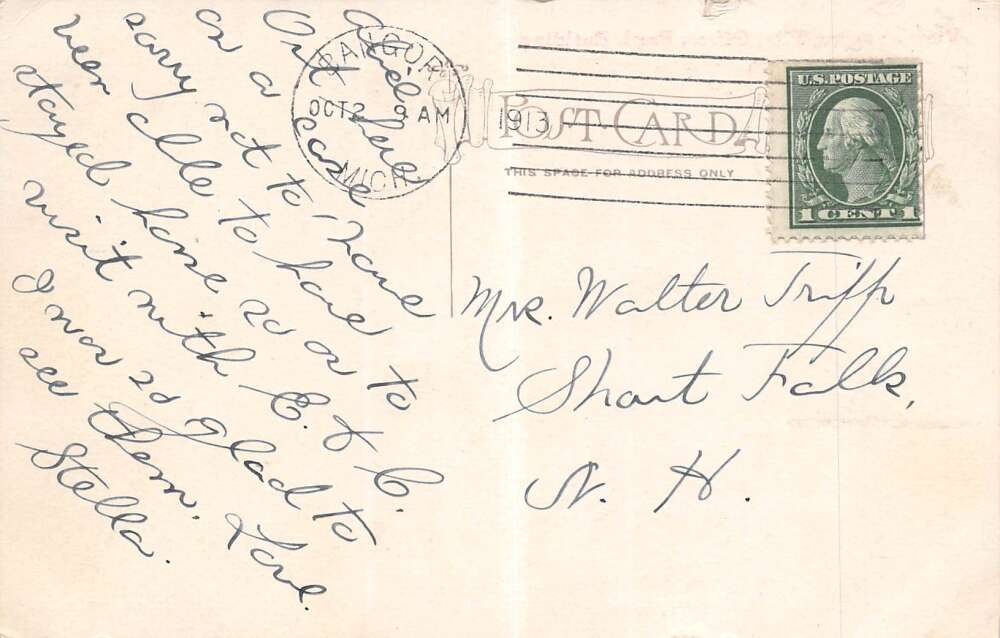 Out here
on a case
sorry not to have
been able to have
stayed home so as to
visit with E. & C.
I was so glad to
see them. Love.
Stella.
BANGOR
OCT 2 9 AM
MICH.
1913
POST CARD
THIS SPACE FOR ADDRESS ONLY
U.S. POSTAGE
1 CENT 1
Mrs. Walter Tripp
Short Falls,
N. H.